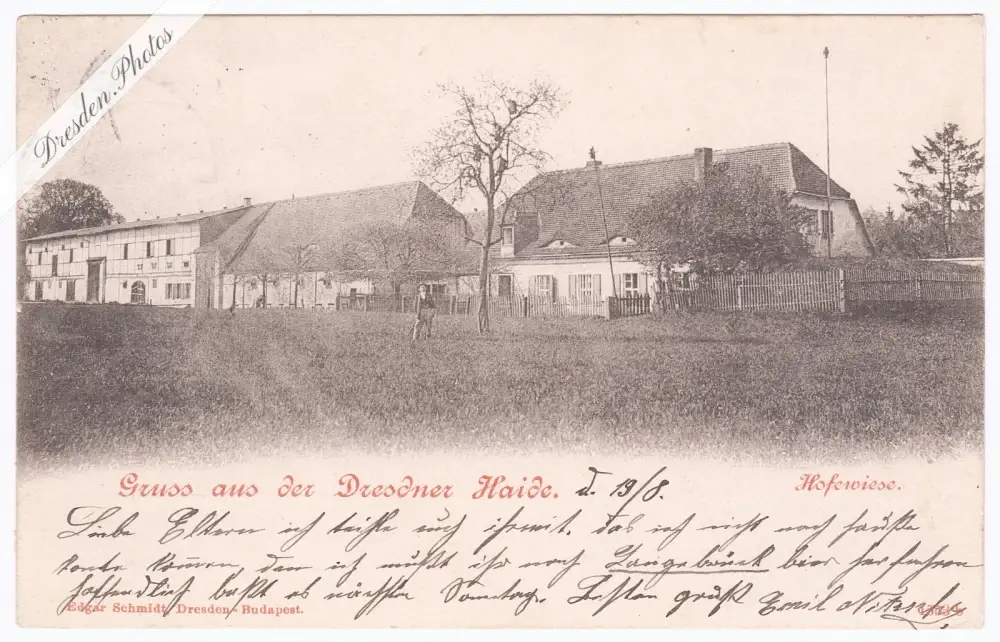 Dresden.Photos
Gruss aus der Dresdner Haide. d. 19/8. Hofewiese.
Liebe Eltern ich teihle euch ihr mit, das ich nicht nach hauße
konte kommen, den ich mußt ihr nach Langebrück
hoffendlich baßt es nächsten Sonntag. Besten gruß Emil
Edgar Schmidt, Dresden-Budapest.